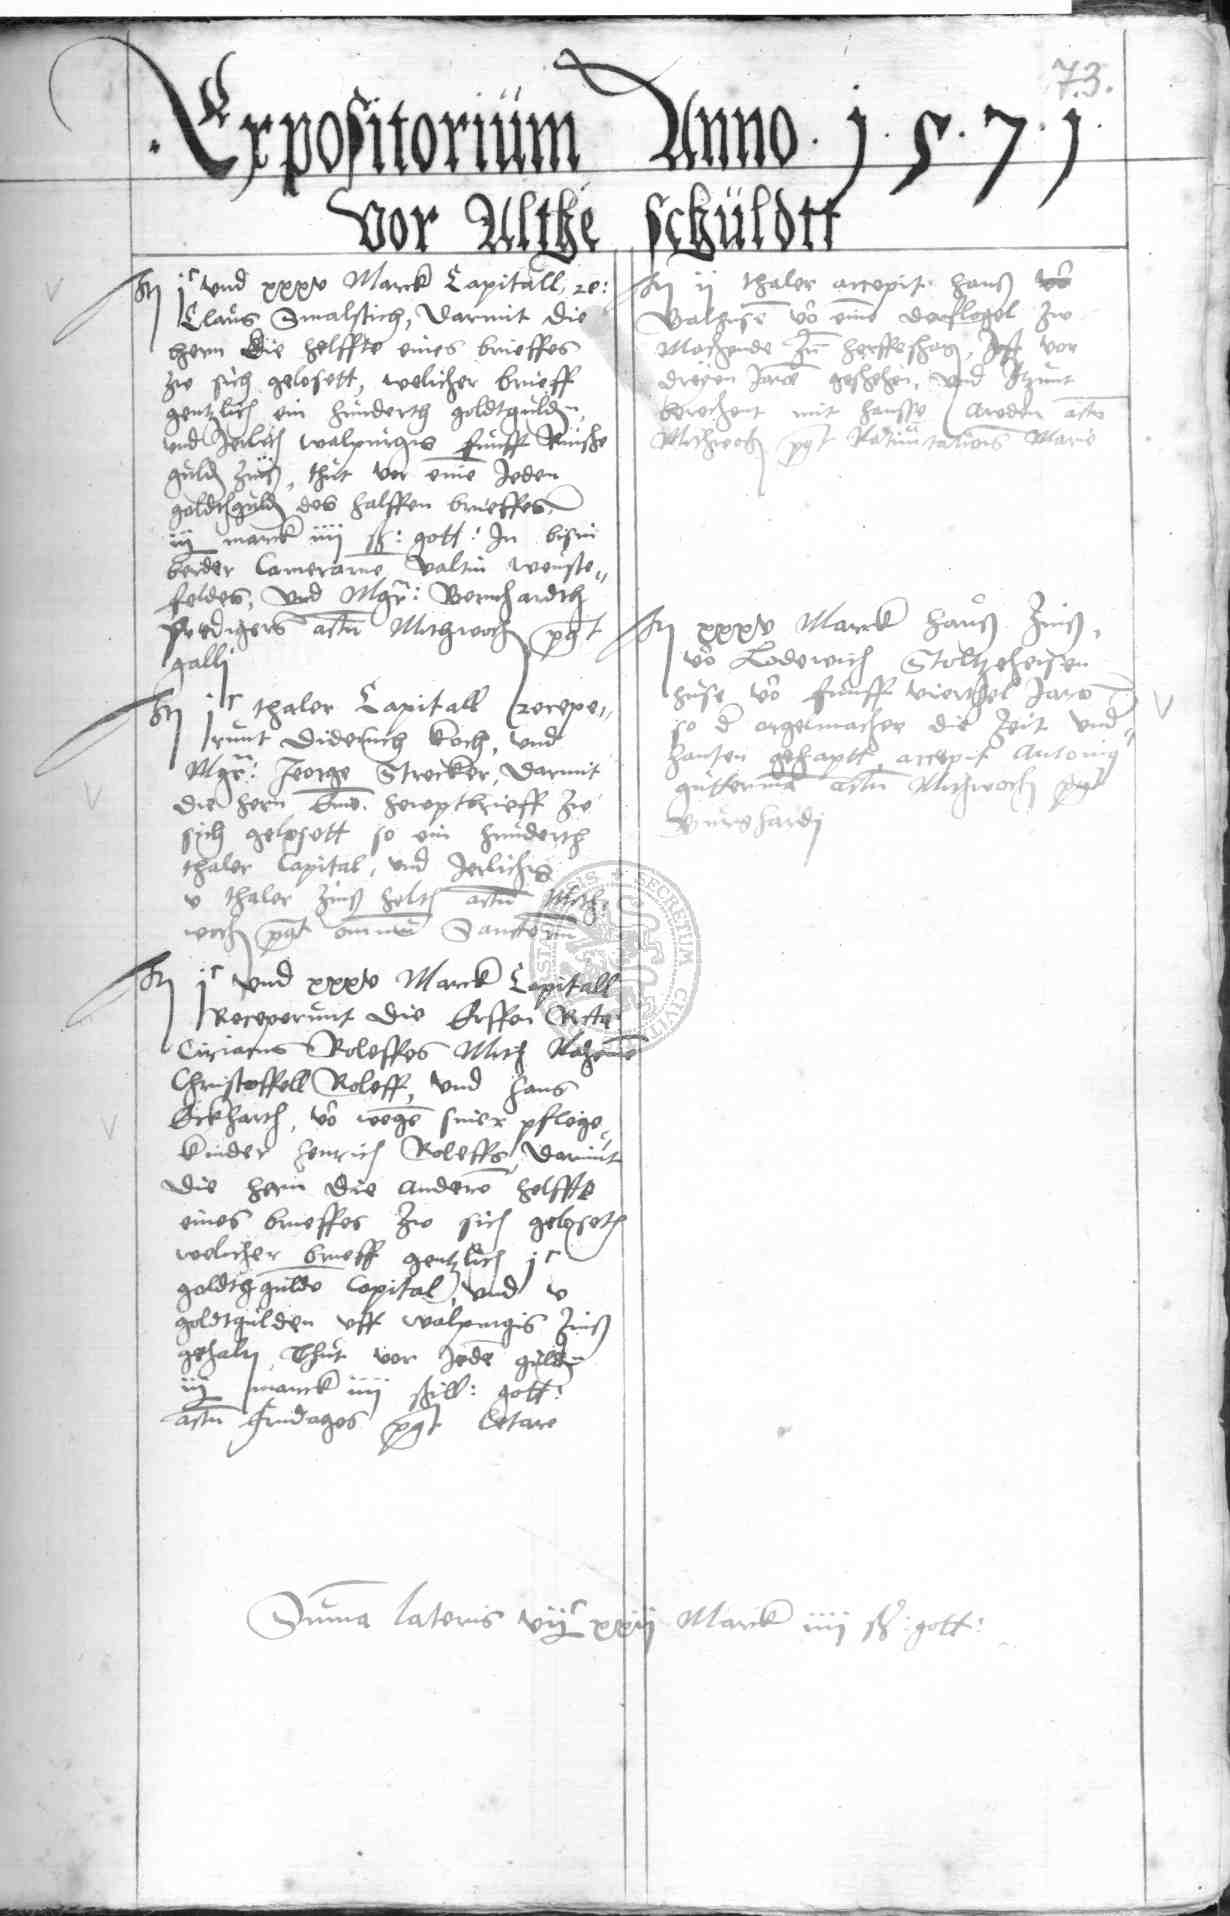 73.
Expositorium Anno . 1 . 5 . 7 . 1
vor Althe schüldtt
It jc und xxxv Marck Capitall, re:
Claus Smalstich, Darmit die
hern die helffte eines brieffes
zw sich gelosett, welicher brieff
gentzlich ein hunderth goldtgulden,
und Jerlich walpurgis funff
guld Zinß, thut vor eine Jeden
goldtguld des halffen brieffes
iij marck iiii ß: gott: In
beider Camerarie Valtin
feldes, und Mgr: Bernhardth
predigers actu Mithwoch pgt
galli
It jc thaler Capitall recepe„
runt Diderich Koch, und
Mgr: Jeorge Strecker, Darmit
die hern heuptbrieff zw
sich gelosett so ein hunderth
thaler Capital, und Jerliches
v thaler Zinß helth actu Mith„
woch pgt omniu Sanctoru
It jc und xxxv Marck Capitall
Receperunt die Erffen
Ciriacus Roleffes Mith Nahme
Christoffell Roleff, und Hans
Eckharth, vo wege siner pflege„
kinder Henrich Roleffs, Darmit
die hern die andere helffte
eines brieffes zw sich geloseth
welicher brieff gentzlich jc
goldthgulde Capital, und v
goldtgulden uff walpurgis Zinß
gehalt, Thut vor Jede gulden
iij marck iiii ßill: gott:
actu fridages pgt Letare
It ij thaler accepit Hans vo
Valhuse vo eine zw
Machende Jst vor
dreyen Jare geschehen, und Jtzunt
berechent mit Hansse Arnden actu
Mithwoch pgt Marie
It xxxv Marck Hauß Zinß,
vo Lodewich Stoltzeheisen
huse vo funff vierthel Jare
so d orgelmacher die Zeit und„
hanten gehaptt, accepit Antonig
actu Mithwoch pgt
Burghardj
Suma lateris vijc xxij Marck iiii ß: gott: